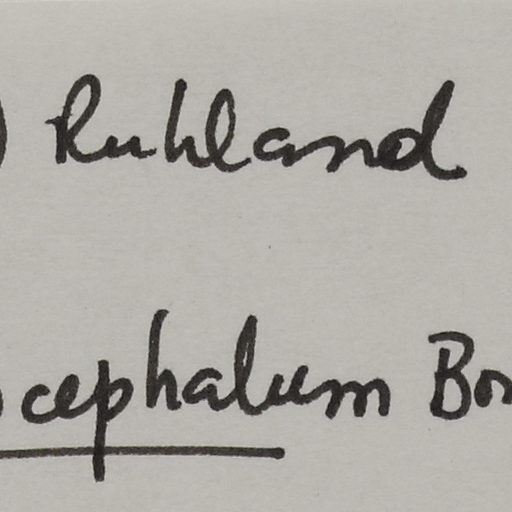 ) Ruhland
ocephalum Bon